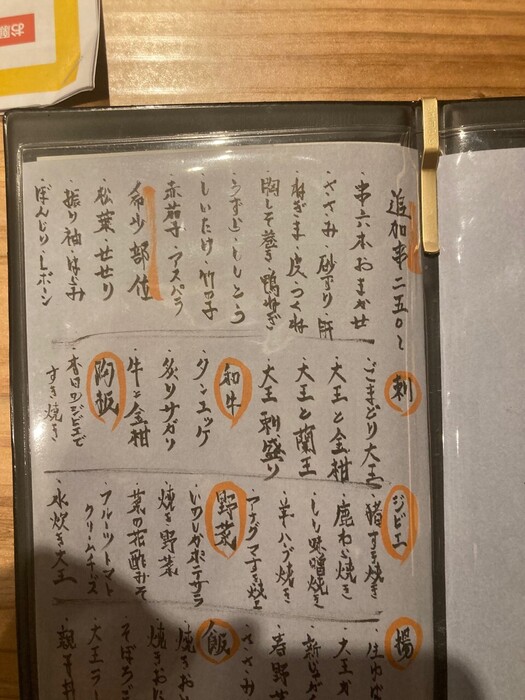 追加串二五〇〜
・串六本おまかせ
・ささみ・砂ずり・肝
・ねぎま・皮・つくね
・胸しそ巻き・鴨ねぎ
・うずら・ししとう
・しいたけ・竹の子
赤茄子・アスパラ
希少部位
・松葉・せせり
・振り袖・はらみ
・ぼんじり・Lボーン
刺
・ごまどり大王
・大王と金柑
・大王と蘭王
・大王刺盛り
和牛
・タンユッケ
・炙りサガリ
・牛と金柑
陶板
・本日のジビエで
すき焼き
ジビエ
・猪すき焼き
・鹿わら焼き
・しし味噌焼き
・羊ハーブ焼き
・アナグマすき焼
野菜
・いのしかポテサラ
・焼き野菜
・菜の花酢みそ
・フルーツトマト
クリームチーズ
・水炊き大王
揚
・大王
・新じゃが
・春野菜
・ささみ
飯
・焼きお
・焼きおに
・そぼろご
・大王ラー
・親子丼